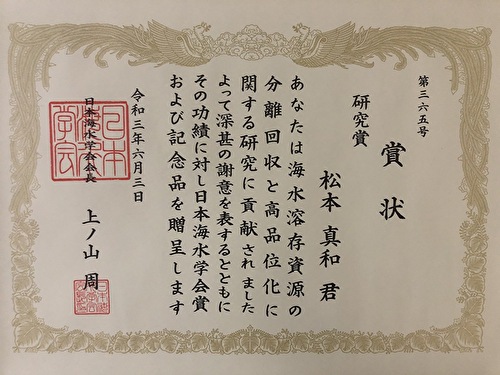 第三六五号
賞状
研究賞
松本 真和 君
あなたは海水溶存資源の
分離回収と高品位化に
関する研究に貢献されました
よって深甚の謝意を表するとともに
その功績に対し日本海水学会賞
および記念品を贈呈します
令和三年六月三日
日本海水学会会長
上ノ山 周
日本海水学会